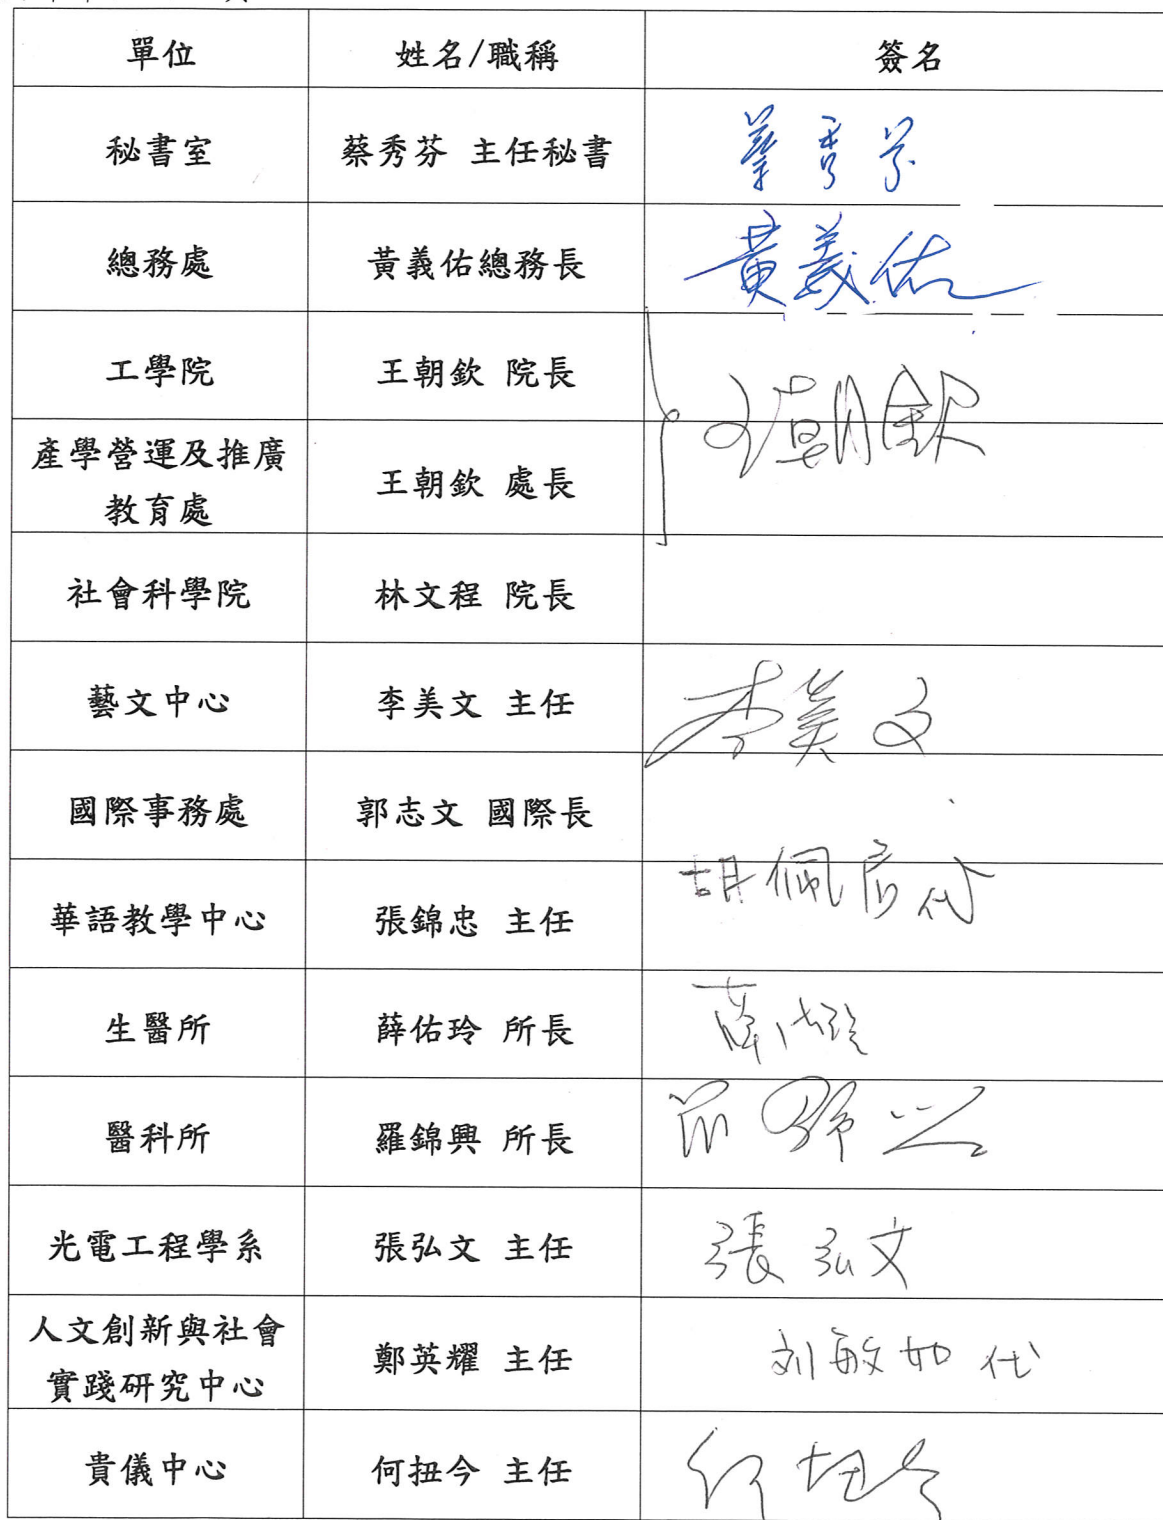 單位 姓名/職稱 簽名
秘書室 蔡秀芬 主任秘書 蔡秀芬
總務處 黃義佑總務長 黃義佑
工學院 王朝欽 院長 王朝欽
產學營運及推廣
教育處 王朝欽 處長
社會科學院 林文程 院長
藝文中心 李美文 主任 李美文
國際事務處 郭志文 國際長
華語教學中心 張錦忠 主任 胡佩 代
生醫所 薛佑玲 所長 薛佑玲
醫科所 羅錦興 所長 羅錦興
光電工程學系 張弘文 主任 張弘文
人文創新與社會
實踐研究中心 鄭英耀 主任 刘敏如 代
貴儀中心 何扭今 主任 何扭今